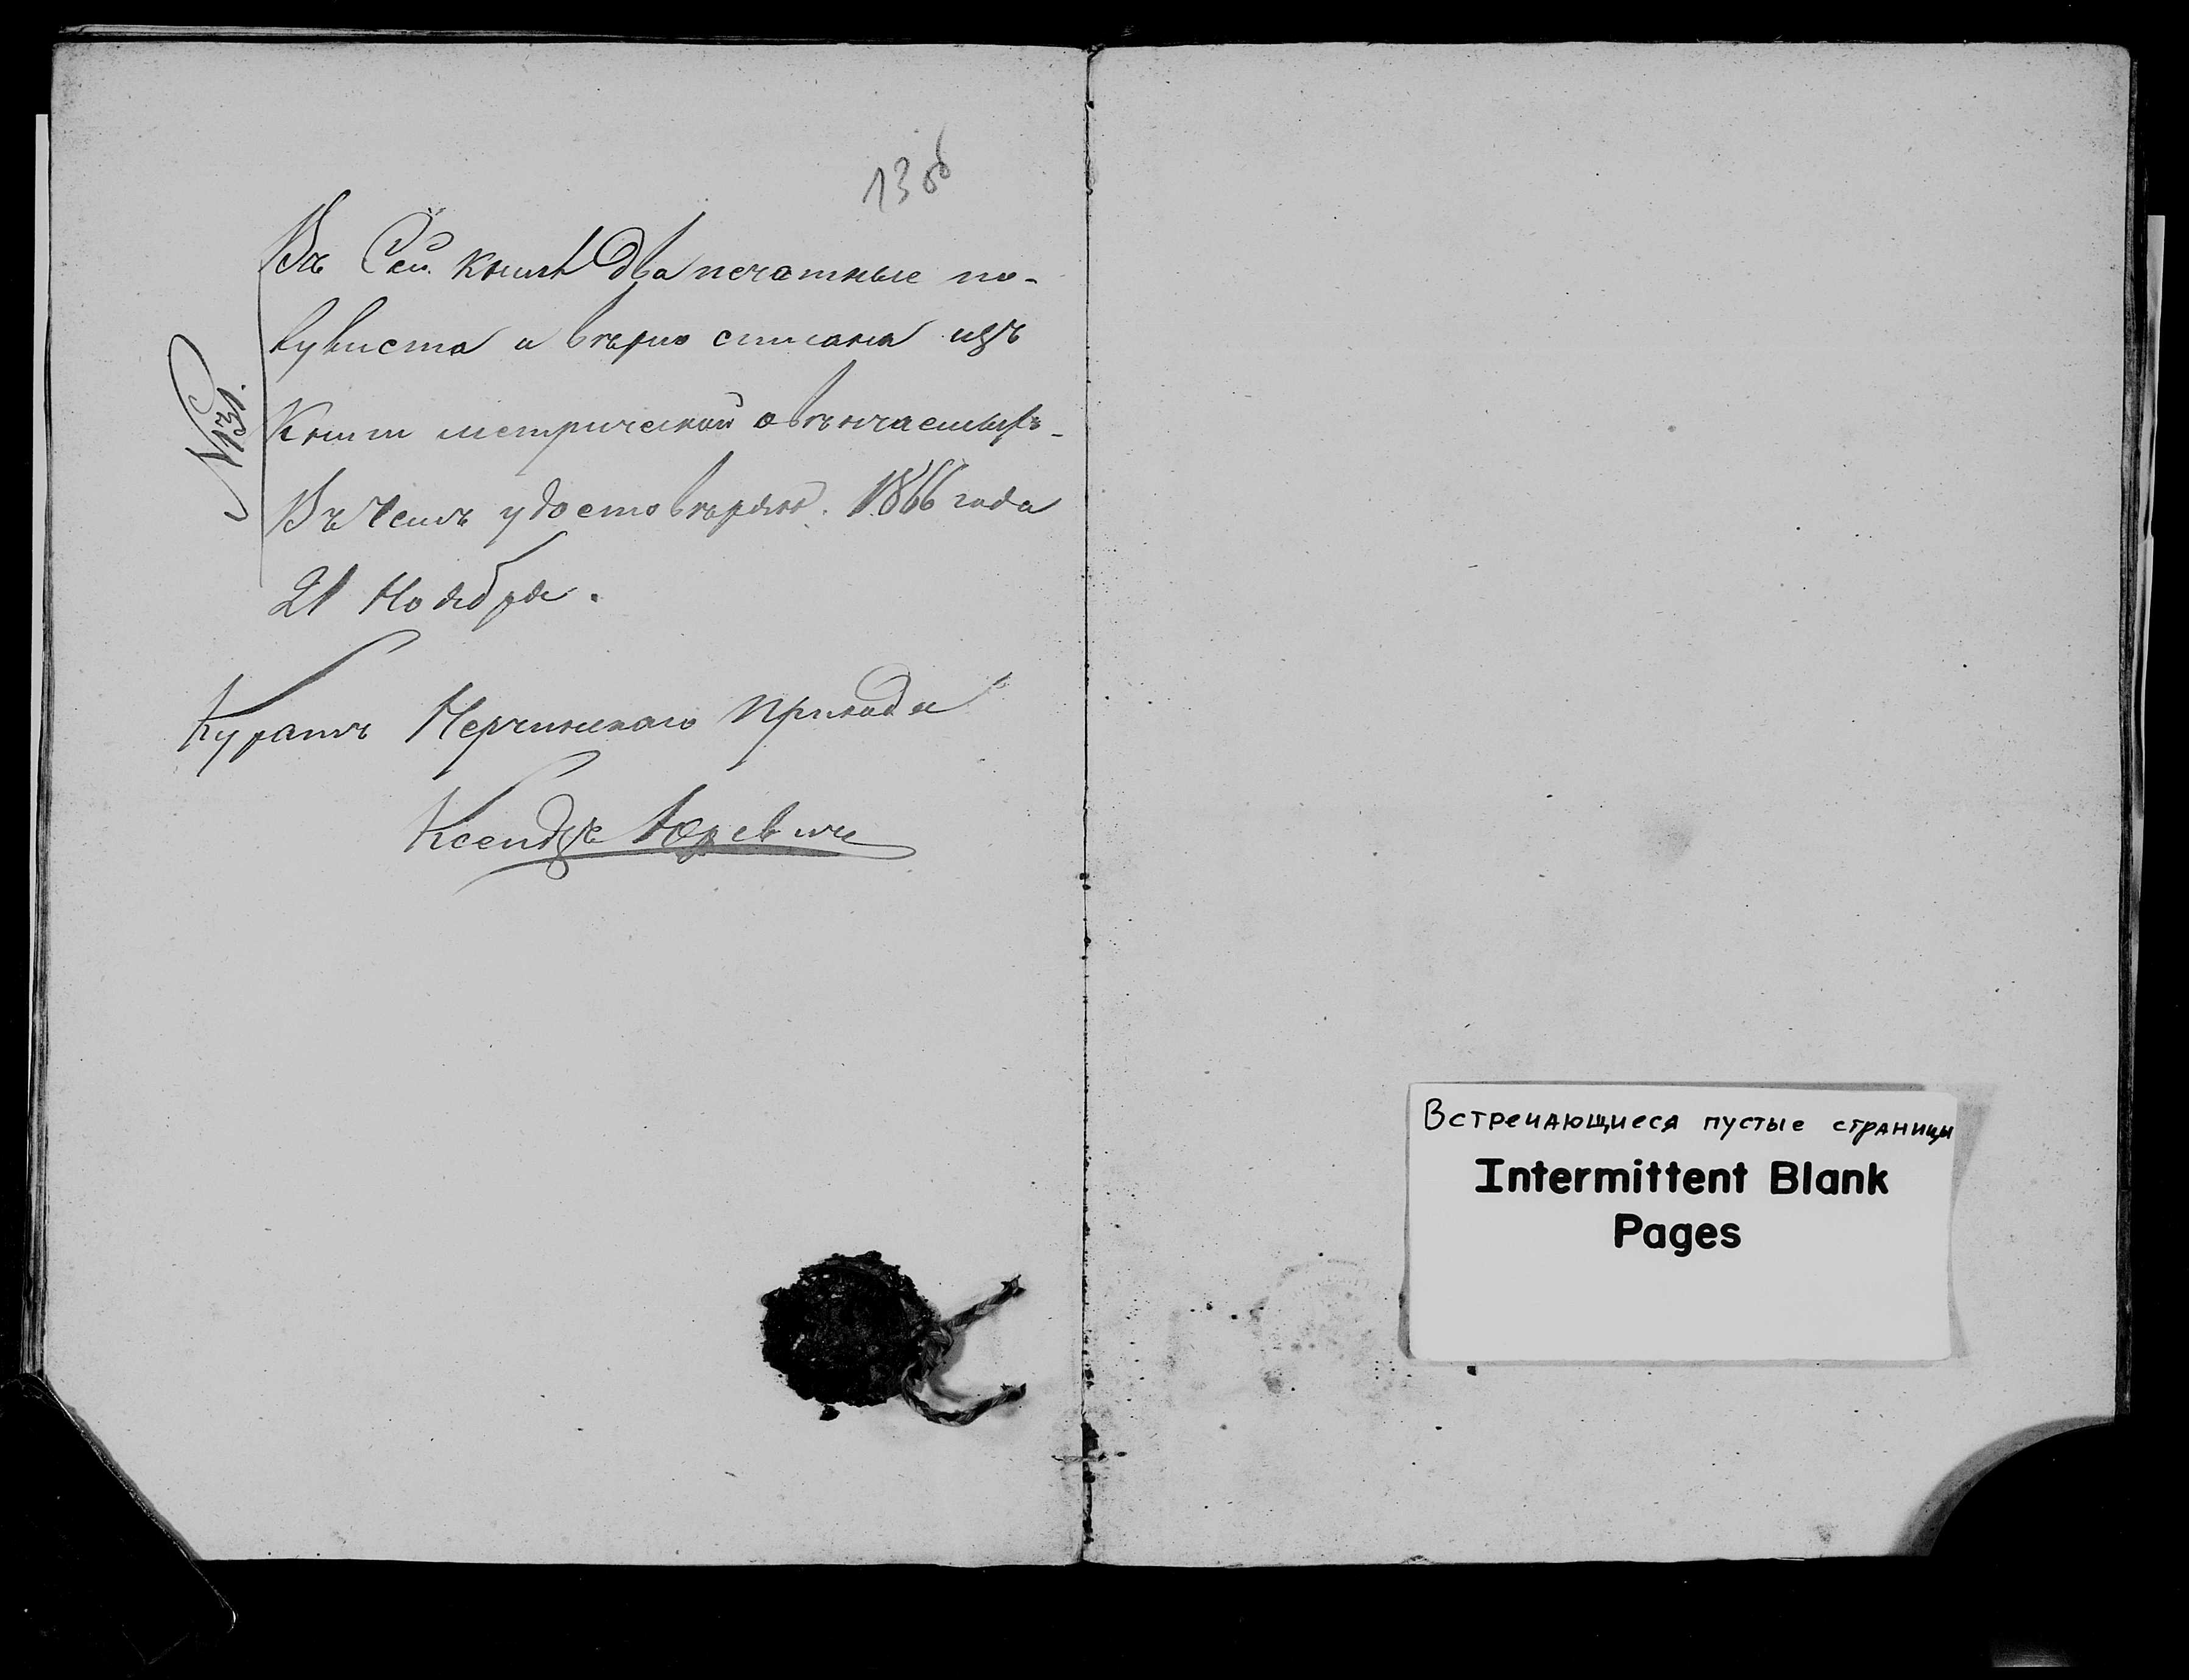 13 об
Въ Сей книгѣ два печатные по-
лулиста и вѣрно списана изъ
Книги метрической о
Въ чемъ удостовѣряю. 1866 года
21 Ноября.
№ 31.
Куратъ Нерчинскаго прихода
Ксендзъ Юревичъ
Встречающиеся пустые страницы
Intermittent Blank
Pages